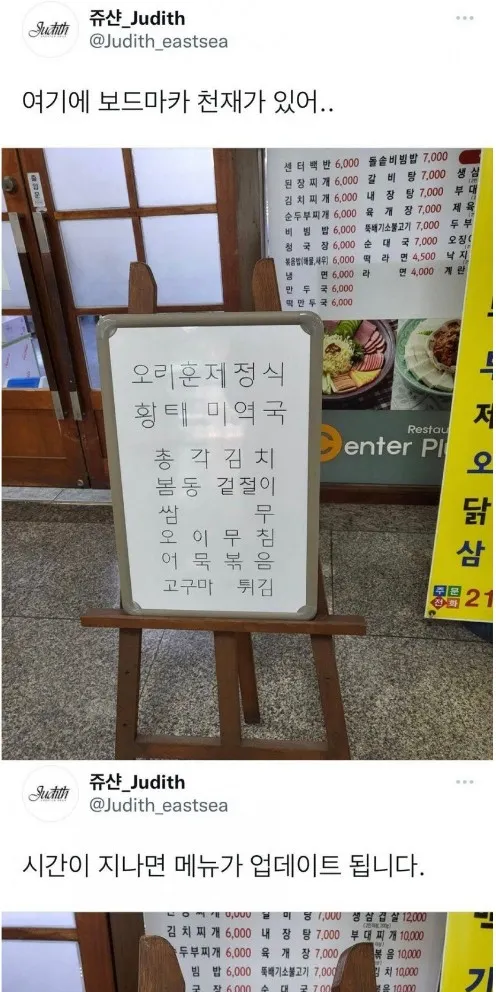 Judith
쥬샨_Judith
@Judith_eastsea
여기에 보드마카 천재가 있어..
센터백반 6,000 돌솥비빔밥 7,000
된장찌개 6,000 갈비탕 7,000
김치찌개 6,000 내장탕 7,000
순두부찌개 6,000 육개장 7,000
비빔밥 6,000 뚝배기소불고기 7,000
청국장 6,000 순대국 7,000
볶음밥(해물,새우) 6,000 떡라면 4,500
냉면 6,000 라면 4,000
만두국 6,000
떡만두국 6,000
출입문
오리훈제정식
황태 미역국
총각김치
봄동 겉절이
쌈무
오이무침
어묵볶음
고구마 튀김
Restau
Center Pl
제
오
닭
삼
주문
전화 21
Judith
쥬샨_Judith
@Judith_eastsea
시간이 지나면 메뉴가 업데이트 됩니다.
6,000 갈비탕 7,000 생삼겹살 12,000
김치찌개 6,000 내장탕 7,000 부대찌개 10,000
두부찌개 6,000 육개장 7,000 볶음 10,000
빔밥 6,000 뚝배기소불고기 7,000 10,000
국장 6,000 순대국 7,000